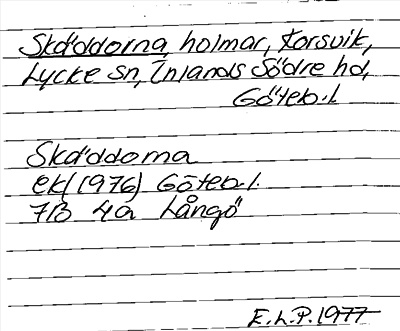 Skäddorna, holmar, Korsvik,
Lycke sn, Inlands Södre hd,
Göteb.l.
Skäddorna
ekl (1976) Göteb.l.
7B 4a Långö
E.L.P. 1977